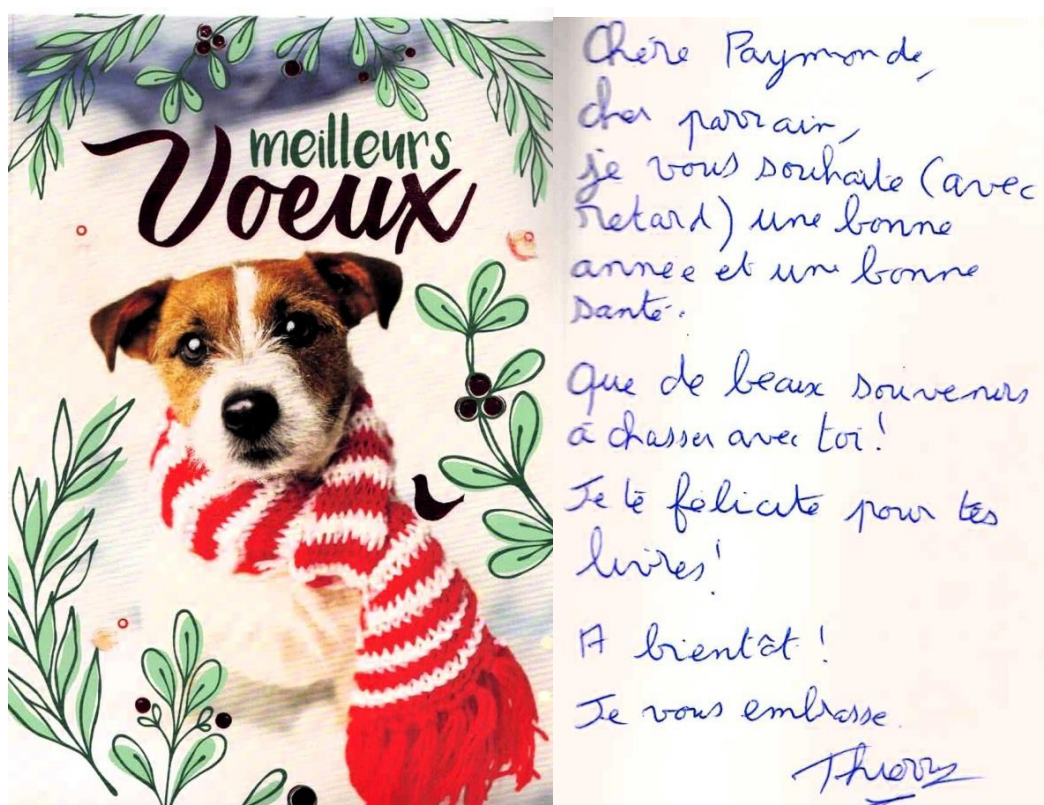 meilleurs
Voeux
Chère Raymonde,
cher parrain,
je vous souhaite (avec
retard) une bonne
année et une bonne
santé.
Que de beaux souvenirs
à chasser avec toi!
Je te félicite pour tes
livres!
A bientôt!
Je vous embrasse.
Thierry